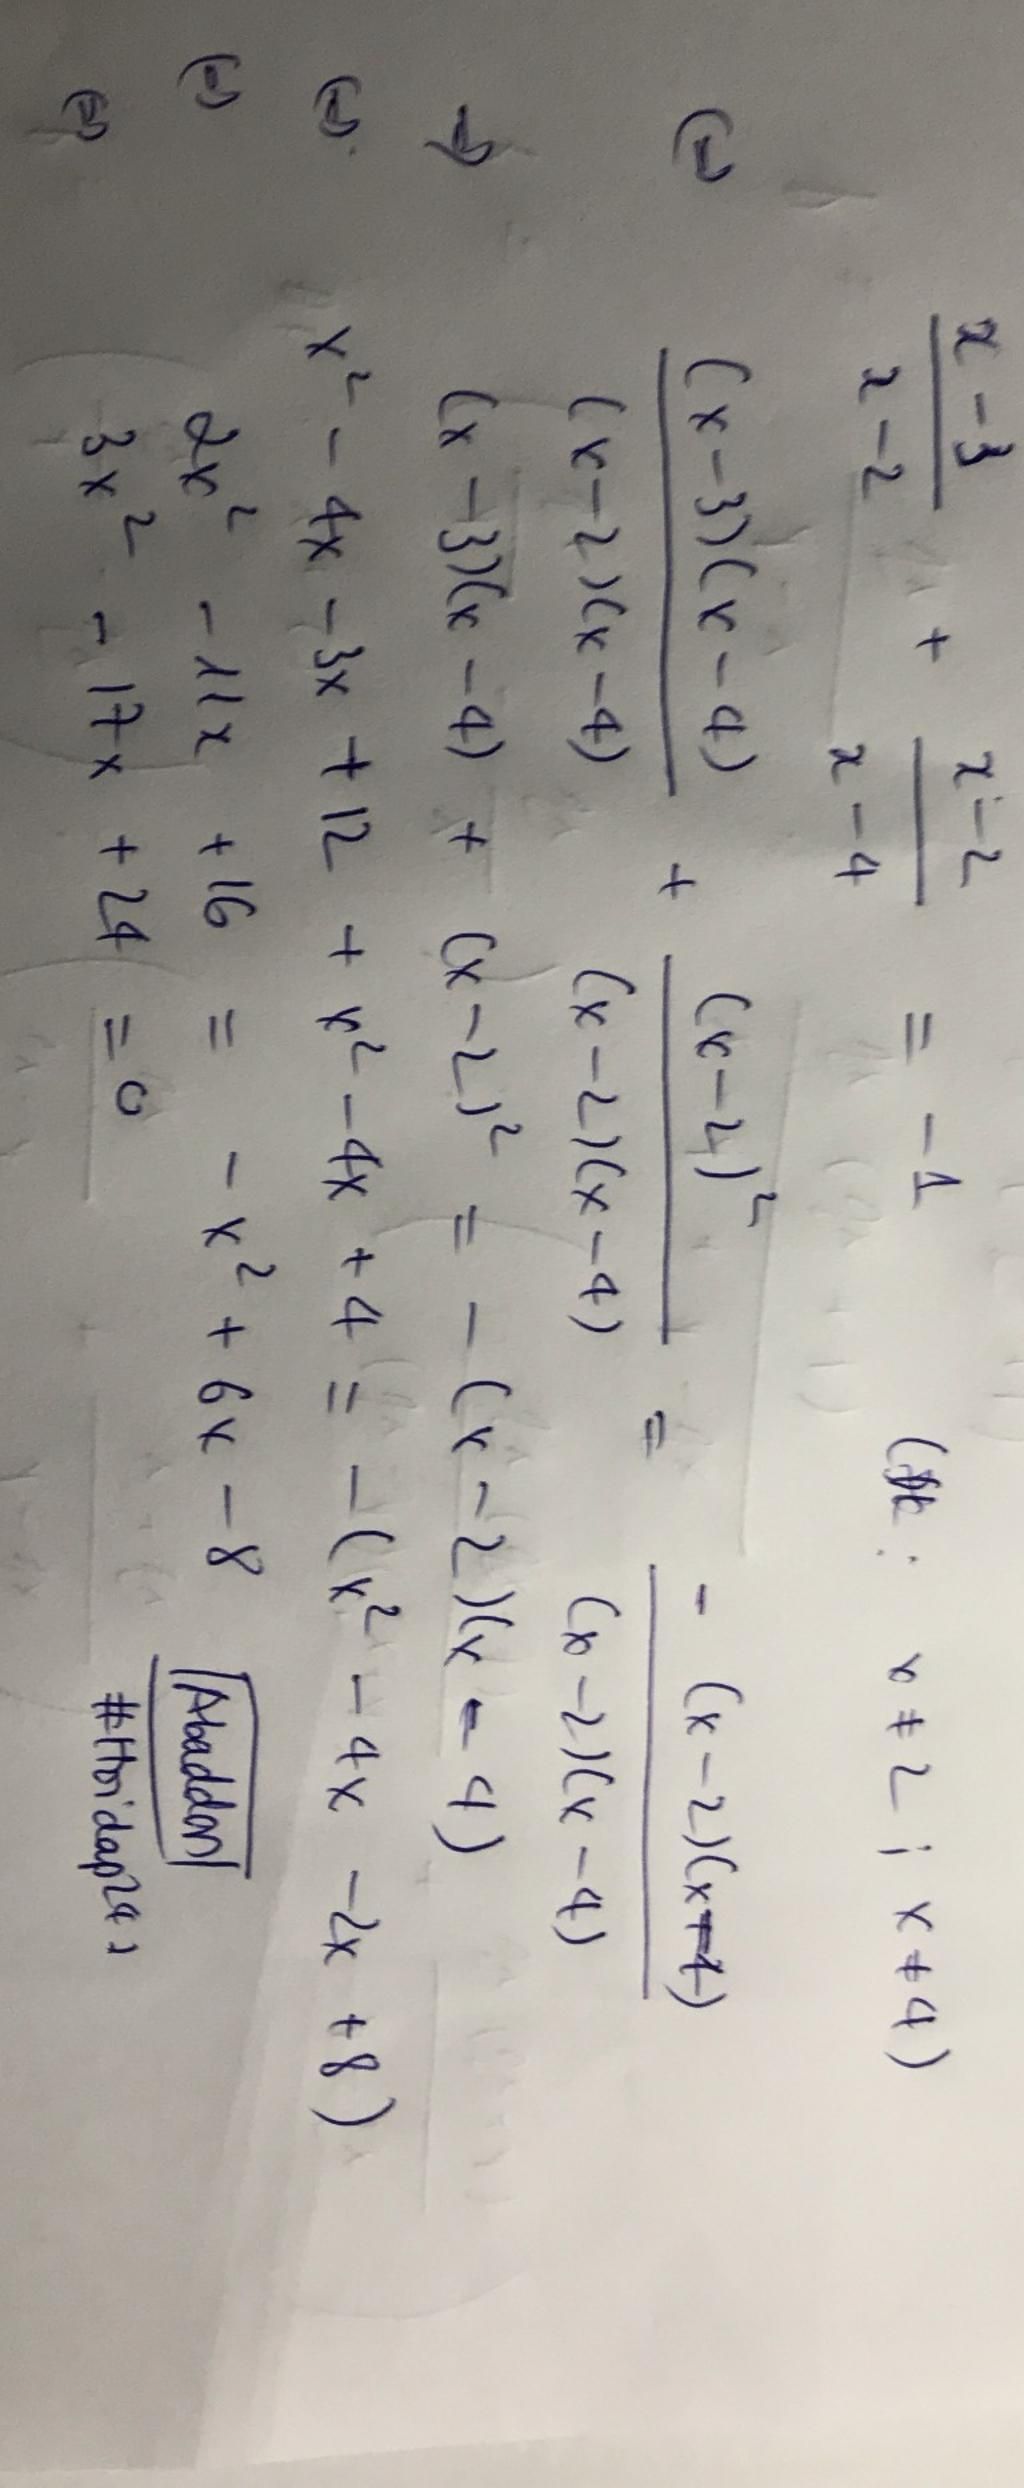 x - 3 / x - 2 + x - 2 / x - 4 = - 1 (đk : x ≠ 2 ; x ≠ 4)
(=) (x - 3)(x - 4) / (x - 2)(x - 4) + (x - 2)² / (x - 2)(x - 4) = - (x - 2)(x - 4) / (x - 2)(x - 4)
→ (x - 3)(x - 4) + (x - 2)² = - (x - 2)(x - 4)
(=) x² - 4x - 3x + 12 + x² - 4x + 4 = - (x² - 4x - 2x + 8)
(=) 2x² - 11x + 16 = - x² + 6x - 8
(=) 3x² - 17x + 24 = 0
Abaddon
#Hoidap247